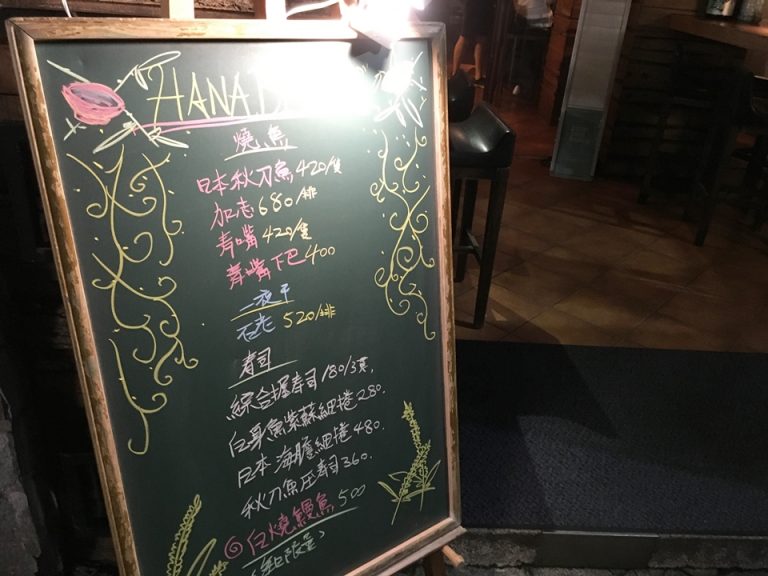 HANA
燒魚
日本秋刀魚 420/隻
加志 680/排
青嘴 420/隻
青嘴下巴 400
一夜干
石老 520/排
壽司
綜合握壽司 180/3貫,
白身魚紫蘇細捲 280.
日本海膽細捲 480.
秋刀魚压壽司 360.
白燒鰻魚 500
(每日限量)